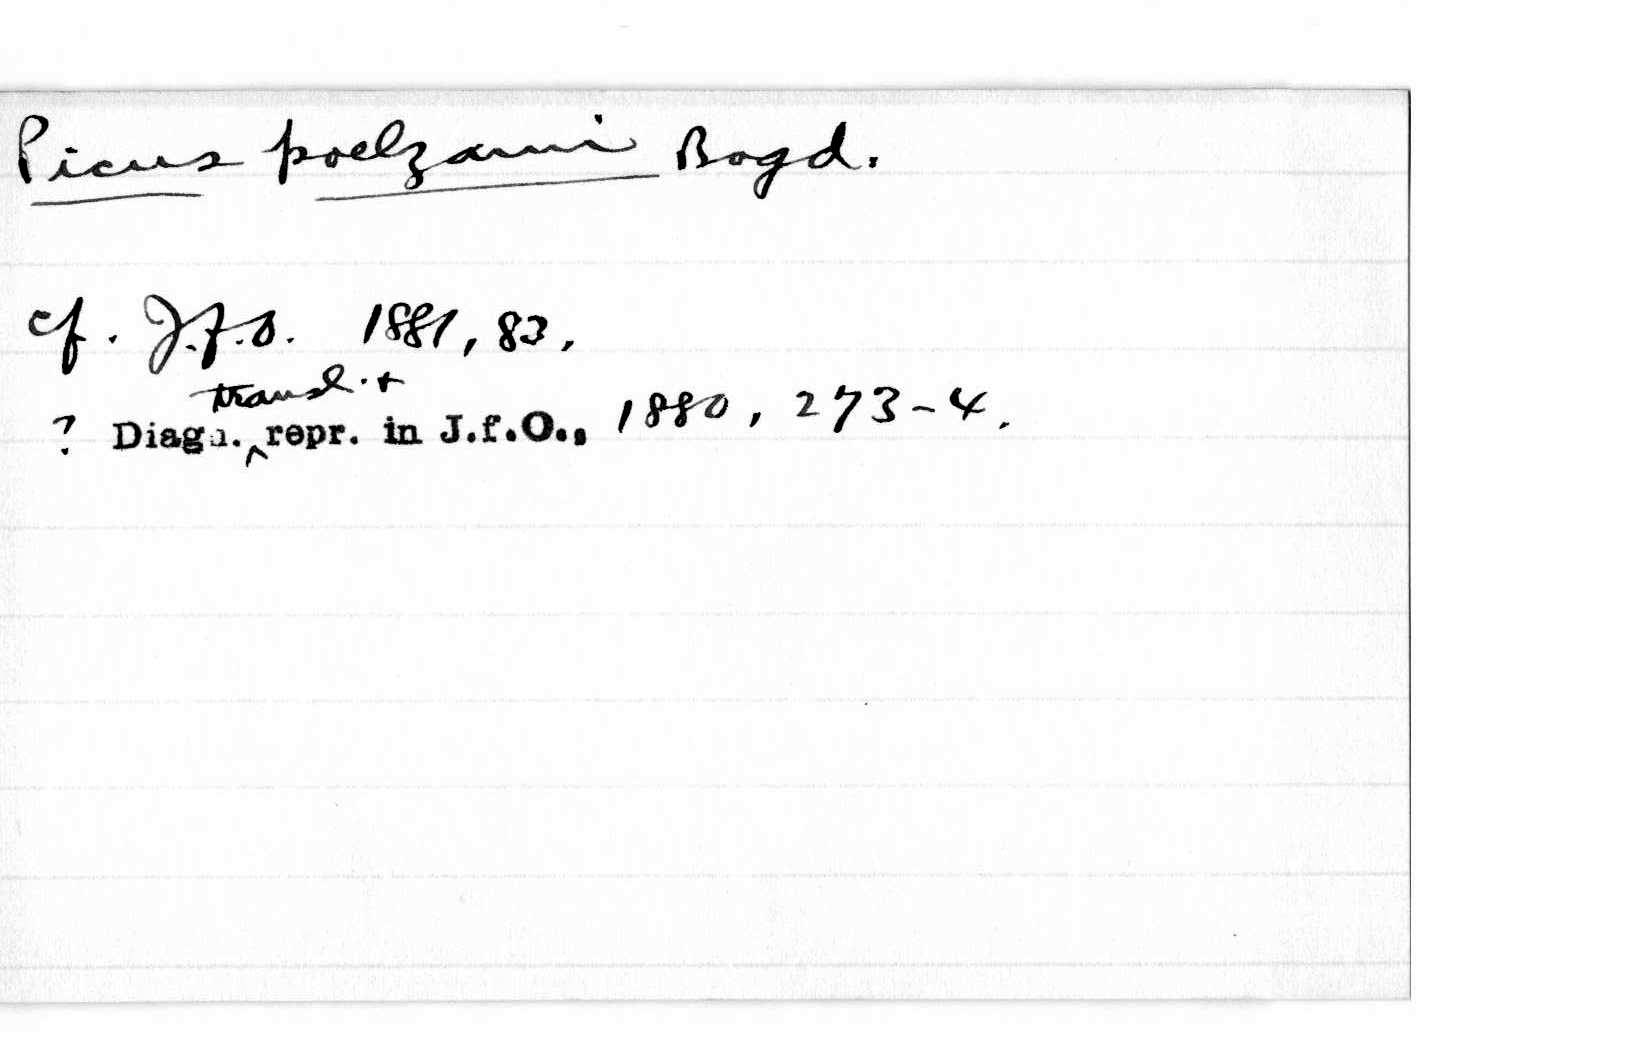 Picus poelzami Bogd.
cf. J.f.O. 1881, 83.
transl. +
? Diagn. ^ repr. in J.f.O., 1880, 273-4.